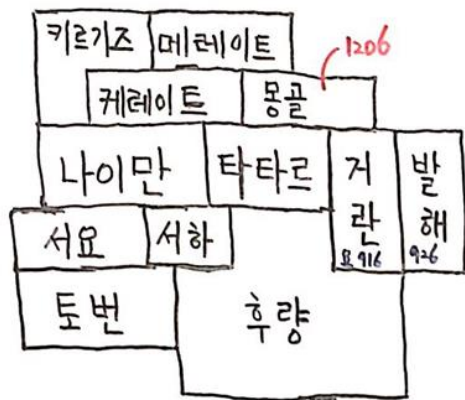 키르기즈 메레이트 1206
케레이트 몽골
나이만 타타르 거란 발해
요 916 926
서요 서하
토번 후량